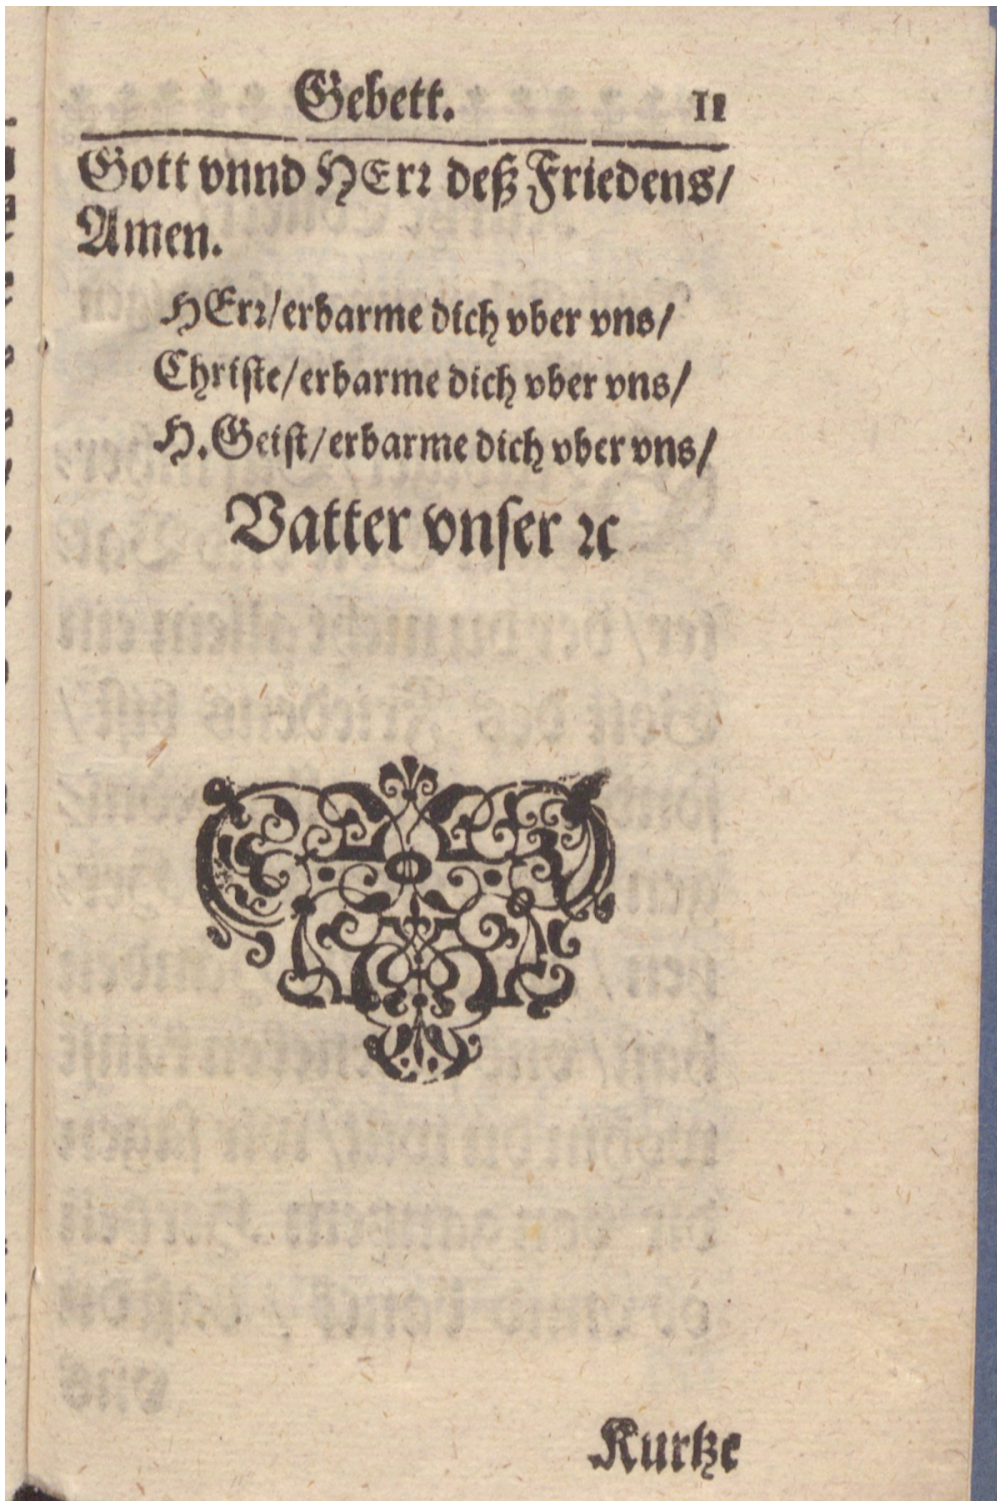 Gebett. 11
Gott vnnd HErꝛ deß Friedens/
Amen.
HErꝛ/erbarme dich vber vns/
Chriſte/erbarme dich vber vns/
H. Geiſt/erbarme dich vber vns/
Vatter vnſer ꝛc
Kurtze